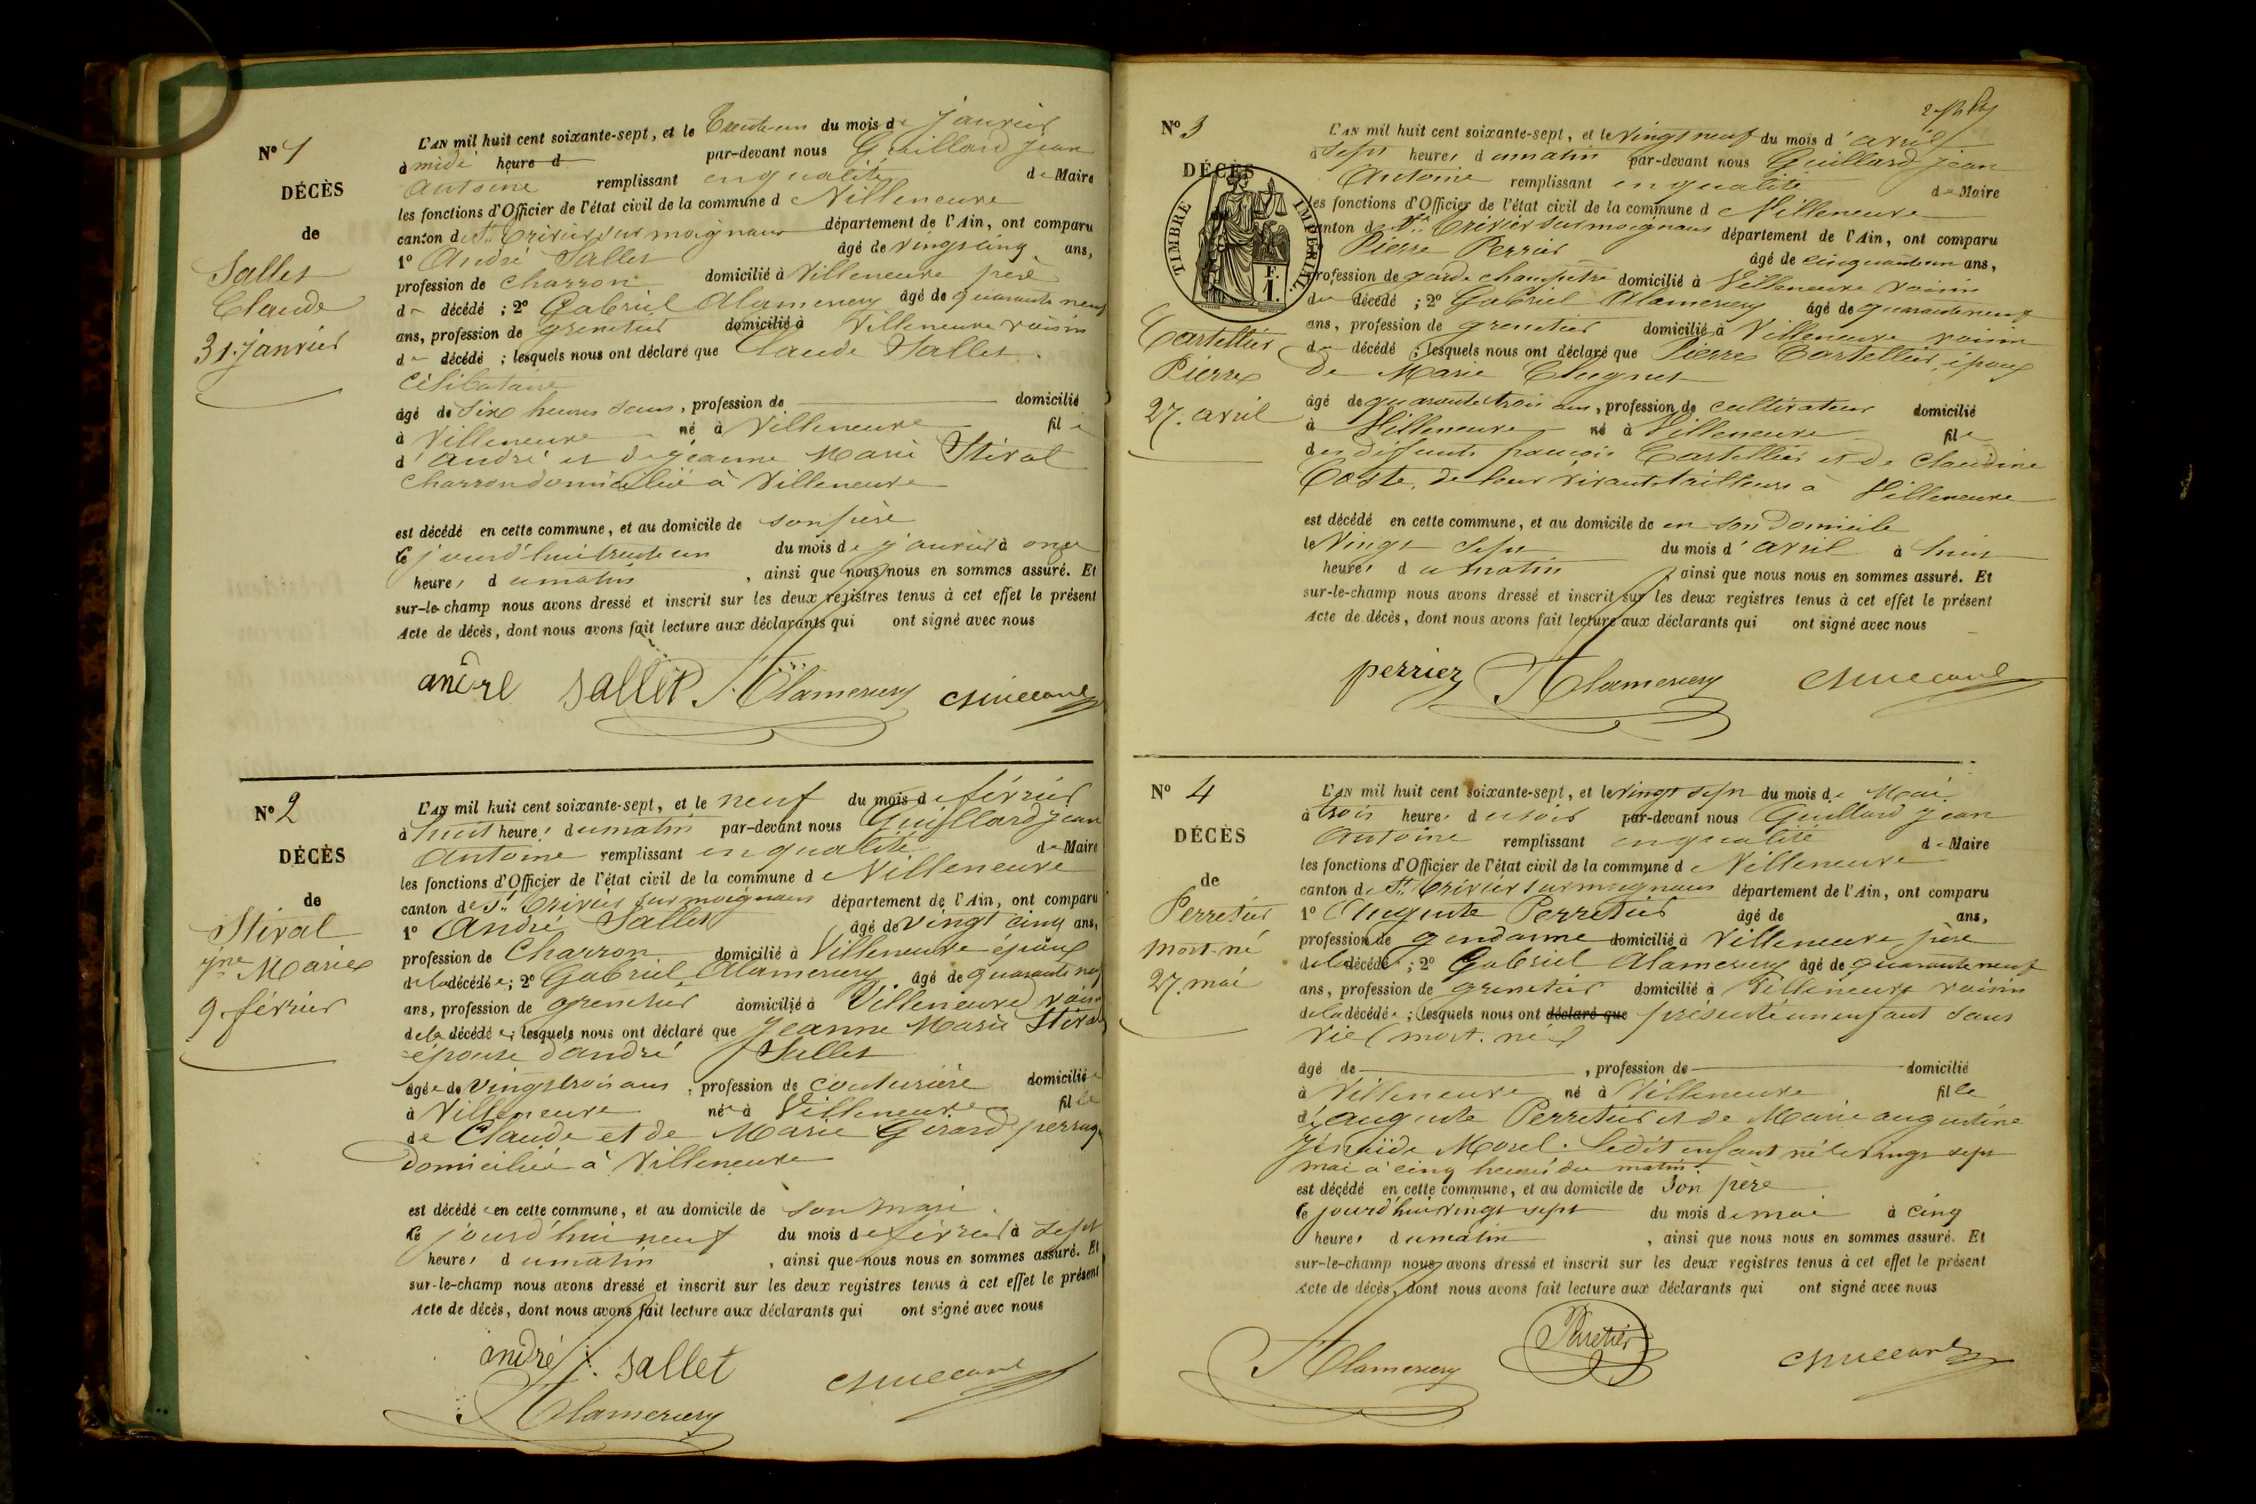 N° 1
DÉCÈS
de
Sallet
Claude
31. janvier
L'AN mil huit cent soixante-sept, et le Trente un du mois de janvier
à midi heure d par-devant nous Guillard jean
Antoine remplissant en qualité de Maire
les fonctions d'Officier de l'état civil de la commune d Villeneuve
canton de St. Trivier sur moignans département de l'Ain, ont comparu
1° André Sallet âgé de vingt cinq ans,
profession de charron domicilié à Villeneuve père
du décédé ; 2° Gabriel Alamercery âgé de quarante neuf
ans, profession de grenetier domicilié à Villeneuve voisin
du décédé ; lesquels nous ont déclaré que Claude Sallet
Célibataire
âgé de six heures sans, profession de domicilié
à Villeneuve né à Villeneuve fils
d'andré et de jeanne Marie Stival
charron domicilié à Villeneuve
est décédé en cette commune, et au domicile de son père
ce jourd'hui trente un du mois de janvier à onze
heures du matin, ainsi que nous nous en sommes assuré. Et
sur-le-champ nous avons dressé et inscrit sur les deux registres tenus à cet effet le présent
Acte de décès, dont nous avons fait lecture aux déclarants qui ont signé avec nous
andre Sallet Alamercery
N° 2
DÉCÈS
de
Stival
jne Marie
9. février
L'AN mil huit cent soixante-sept, et le neuf du mois de février
à huit heures du matin par-devant nous Guillard jean
Antoine remplissant en qualité de Maire
les fonctions d'Officier de l'état civil de la commune de Villeneuve
canton de St. Trivier sur moignans département de l'Ain, ont comparu
1° André Sallet âgé de vingt cinq ans,
profession de Charron domicilié à Villeneuve époux
de la décédée ; 2° Gabriel Alamercery âgé de quarante neuf
ans, profession de grenetier domicilié à Villeneuve voisin
de la décédée ; lesquels nous ont déclaré que Jeanne Marie Stival
épouse d'andré Sallet
âgée de vingt trois ans, profession de couturière domiciliée
à Villeneuve née à Villeneuve fille
de Claude et de Marie Girard
domiciliée à Villeneuve
est décédée en cette commune, et au domicile de son mari
ce jourd'hui neuf du mois de février à sept
heures du matin, ainsi que nous nous en sommes assuré. Et
sur-le-champ nous avons dressé et inscrit sur les deux registres tenus à cet effet le présent
Acte de décès, dont nous avons fait lecture aux déclarants qui ont signé avec nous
andré Sallet
Alamercery
N° 3
DÉCÈS
TIMBRE IMPÉRIAL
Cartellier
Pierre
27. avril
L'AN mil huit cent soixante-sept, et le vingt neuf du mois d'avril
à sept heures du matin par-devant nous Guillard jean
Antoine remplissant en qualité de Maire
les fonctions d'Officier de l'état civil de la commune d Villeneuve
canton de St. Trivier sur moignans département de l'Ain, ont comparu
Pierre Perrier âgé de cinquante un ans,
profession de garde champêtre domicilié à Villeneuve voisin
du décédé ; 2° Gabriel Alamercery âgé de quarante neuf
ans, profession de grenetier domicilié à Villeneuve voisin
du décédé ; lesquels nous ont déclaré que Pierre Cartellier, époux
de Marie Clugnet
âgé de quarante trois ans, profession de cultivateur domicilié
à Villeneuve né à Villeneuve fils
des défunts françois Cartellier et de Claudine
Coste, de leur vivant tailleurs à Villeneuve
est décédé en cette commune, et au domicile de en son domicile
le Vingt Sept du mois d'avril à huit
heures du matin, ainsi que nous nous en sommes assuré. Et
sur-le-champ nous avons dressé et inscrit sur les deux registres tenus à cet effet le présent
Acte de décès, dont nous avons fait lecture aux déclarants qui ont signé avec nous
perrier Alamercery
N° 4
DÉCÈS
de
Perretier
Mort-né
27. mai
L'AN mil huit cent soixante-sept, et le vingt sept du mois de Mai
à trois heures du soir par-devant nous Guillard jean
Antoine remplissant en qualité de Maire
les fonctions d'Officier de l'état civil de la commune de Villeneuve
canton de St. Trivier sur moignans département de l'Ain, ont comparu
1° Auguste Perretier âgé de ans,
profession de gendarme domicilié à Villeneuve, père
de la décédée ; 2° Gabriel Alamercery âgé de quarante neuf
ans, profession de grenetier domicilié à Villeneuve voisin
de la décédée ; lesquels nous ont déclaré que présenté un enfant sans
vie (mort. né)
âgé de , profession de domicilié
à Villeneuve né à Villeneuve fille
d'auguste Perretier et de Marie augustine
Zénaïde Morel. Ledit enfant né le vingt sept
mai à cinq heures du matin.
est décédé en cette commune, et au domicile de son père
ce jourd'hui vingt sept du mois de mai à cinq
heures du matin, ainsi que nous nous en sommes assuré. Et
sur-le-champ nous avons dressé et inscrit sur les deux registres tenus à cet effet le présent
Acte de décès, dont nous avons fait lecture aux déclarants qui ont signé avec nous
Alamercery Perretier